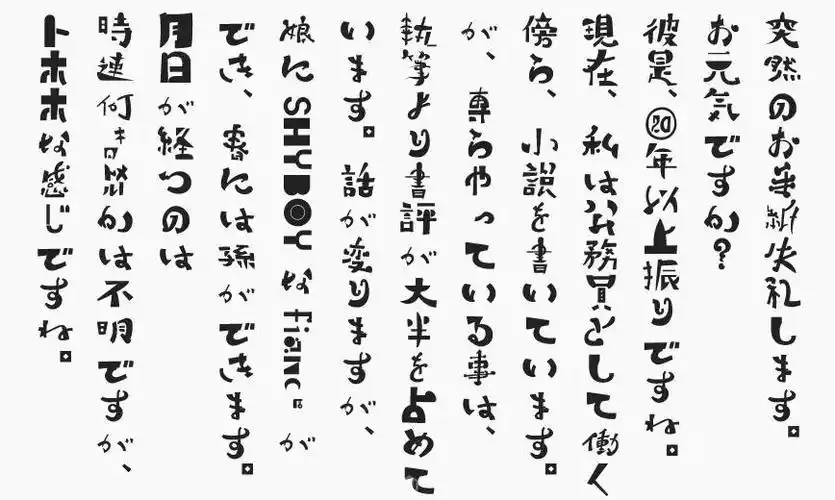 突然のお手紙失礼します。
お元気ですか?
彼是、20年以上振りですね。
現在、私は公務員として働く
傍ら、小説を書いています。
が、専らやっている事は、
執筆より書評が大半を占めて
います。話が変りますが、
娘にSHYBOYなfiancéが
でき、春には孫ができます。
月日が経つのは
時速何
かは不明ですが、
トホホな感じですね。